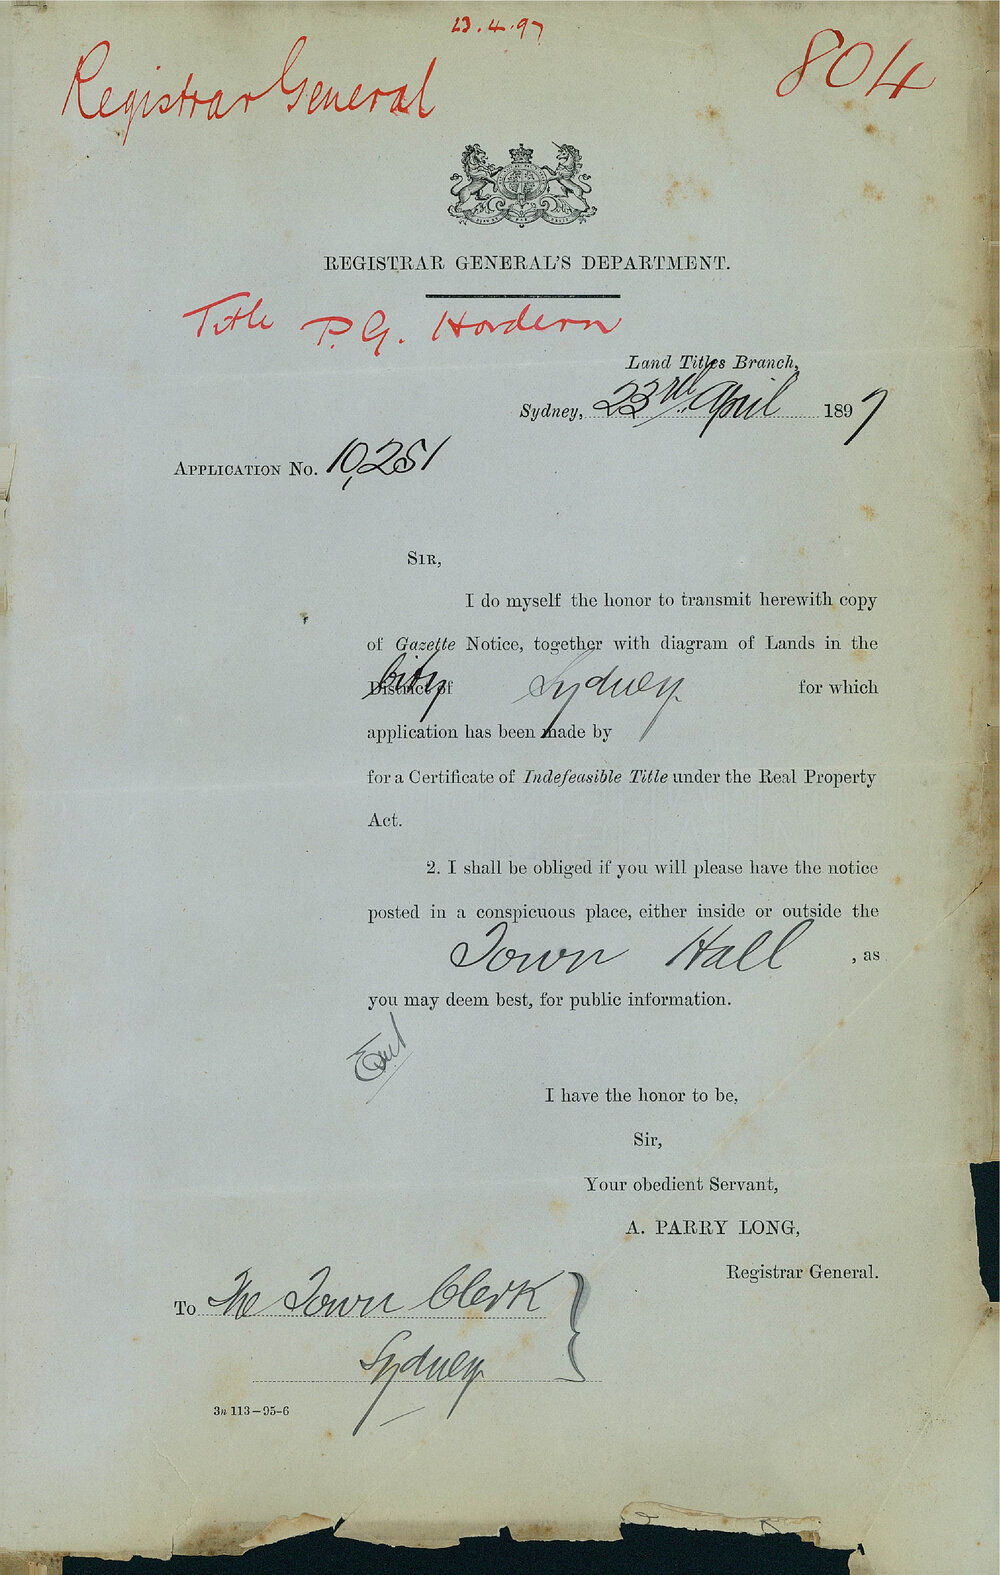 23.4.97
Registrar General
804
REGISTRAR GENERAL'S DEPARTMENT.
Title P. G. Hordern
Land Titles Branch,
Sydney, 23rd April 1897
APPLICATION No. 10,251
SIR,
I do myself the honor to transmit herewith copy
of Gazette Notice, together with diagram of Lands in the
District of City Sydney for which
application has been made by
for a Certificate of Indefeasible Title under the Real Property
Act.
2. I shall be obliged if you will please have the notice
posted in a conspicuous place, either inside or outside the
Town Hall, as
you may deem best, for public information.
I have the honor to be,
Sir,
Your obedient Servant,
A. PARRY LONG,
Registrar General.
To The Town Clerk
Sydney
3n 113-95-6